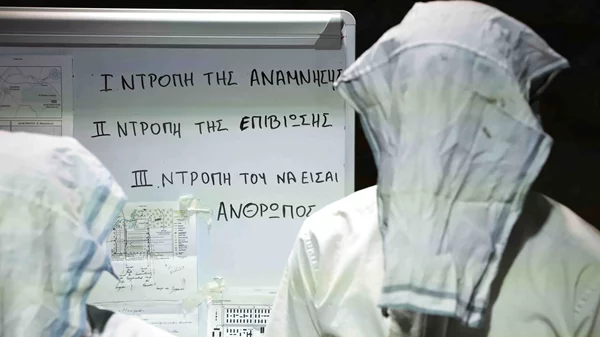 I ΝΤΡΟΠΗ ΤΗΣ ΑΝΑΜΝΗΣΗΣ
II ΝΤΡΟΠΗ ΤΗΣ ΕΠΙΒΙΩΣΗΣ
III ΝΤΡΟΠΗ ΤΟΥ ΝΑ ΕΙΣΑΙ
ΑΝΘΡΩΠΟΣ